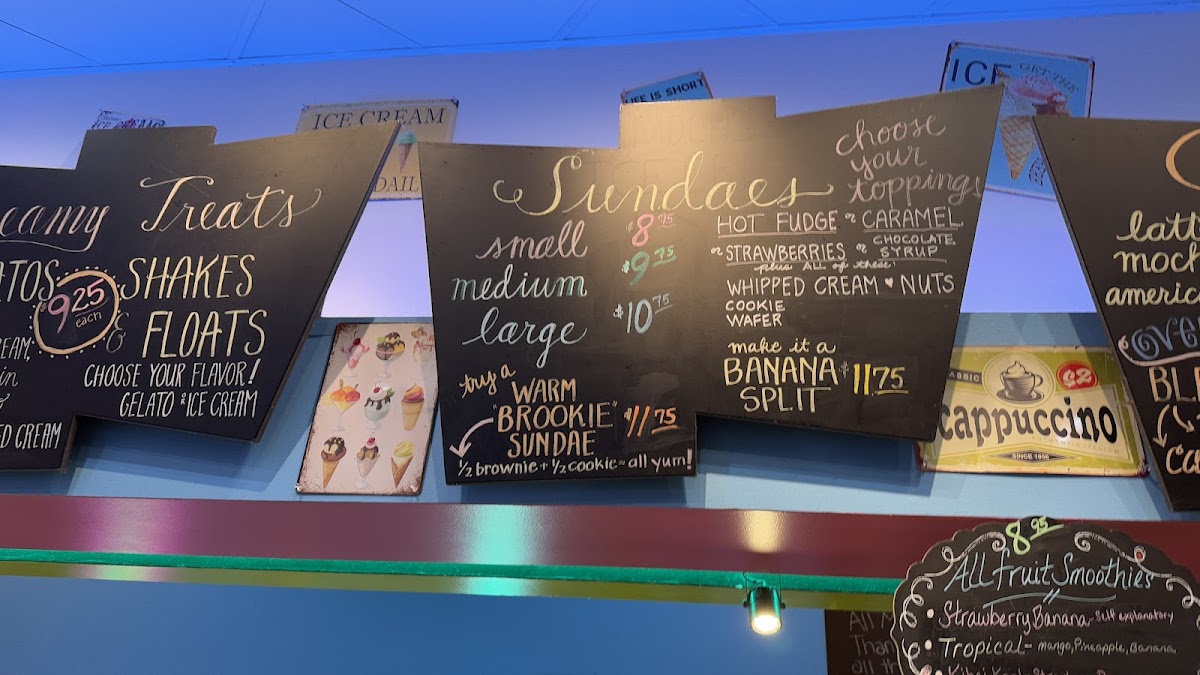 ICE CREAM
LIFE IS SHORT
ICE
Treats
SHAKES
$9.25
each
&
FLOATS
CHOOSE YOUR FLAVOR!
GELATO & ICE CREAM
Sundaes
small $8.75
medium $9.75
large $10.75
try a
WARM
"BROOKIE" $11.75
SUNDAE
1/2 brownie + 1/2 cookie = all yum!
choose
your
toppings
HOT FUDGE or CARAMEL
or STRAWBERRIES or CHOCOLATE SYRUP
plus ALL of these
WHIPPED CREAM ♥ NUTS
COOKIE
WAFER
make it a
BANANA $11.75
SPLIT
cappuccino
SINCE 1956
8.95
All Fruit Smoothies
• Strawberry Banana - Self explanatory
• Tropical = mango, Pineapple, Banana